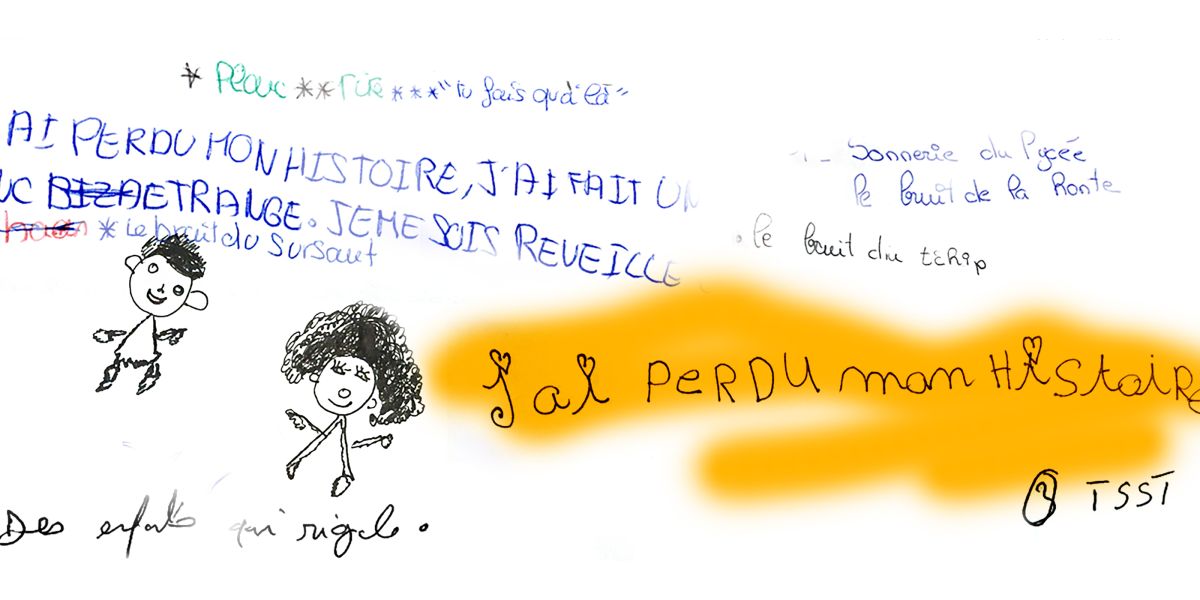 * Pleure ** rire *** "tu fais qu'à là"
AI PERDU MON HISTOIRE, J'AI FAIT UN
UC BIZA ETRANGE. JE ME SUIS REVEILLE
* Le bruit du sursaut
- Sonnerie du lycée
le bruit de la honte
. le bruit du tchip
j'ai PERDU mon HiStoiRe
2 TSST
Des enfants qui rigole.